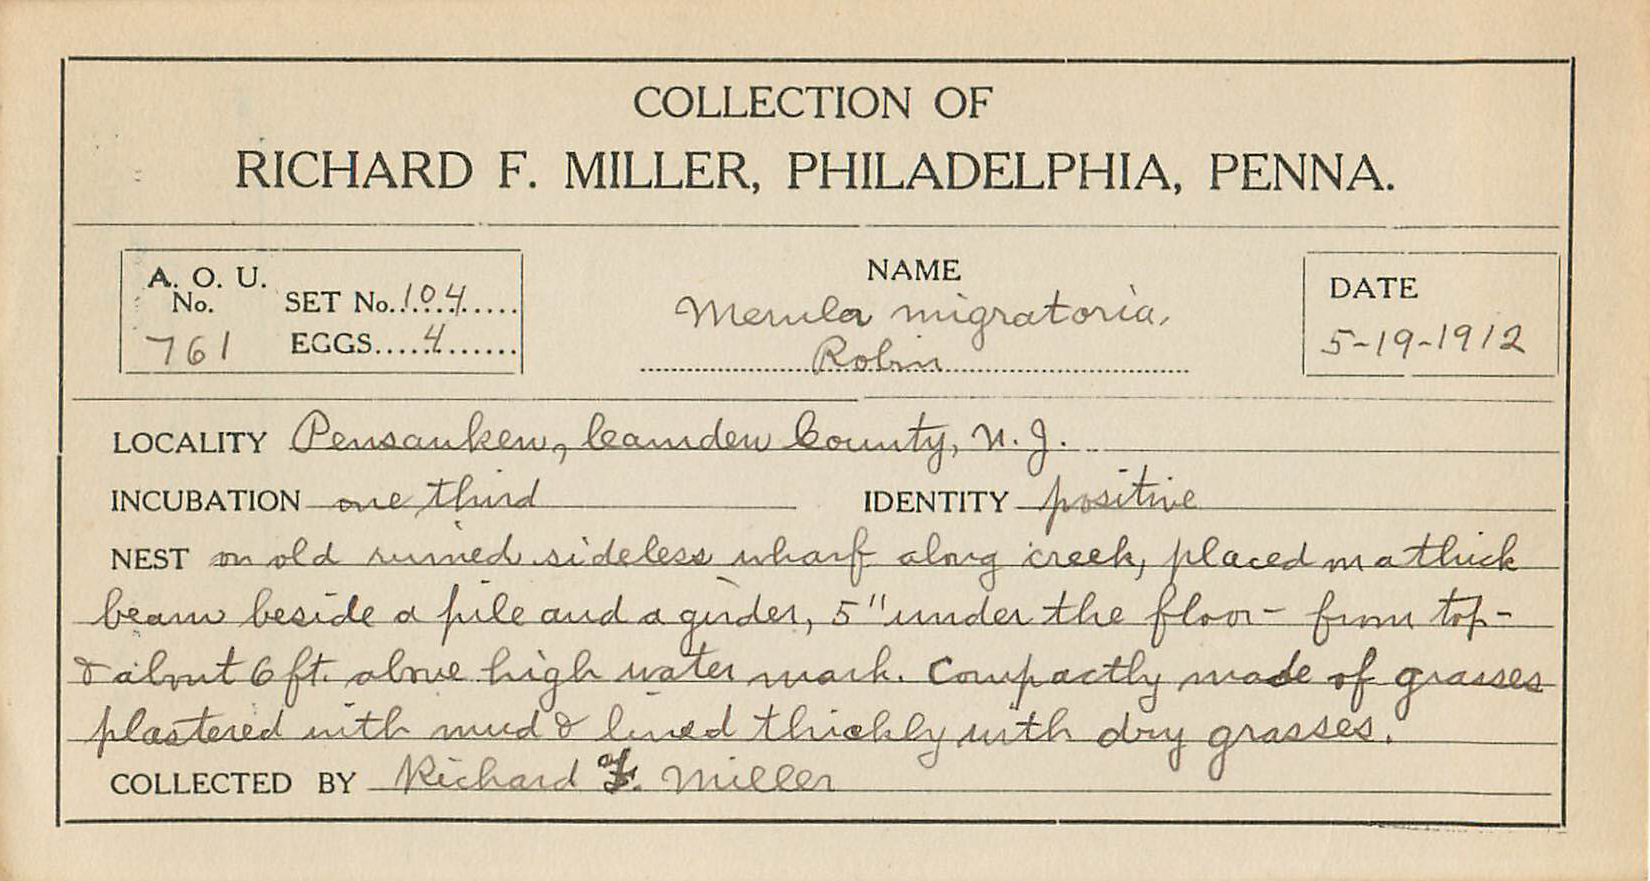 COLLECTION OF
RICHARD F. MILLER, PHILADELPHIA, PENNA.
A. O. U. No. 761
SET No. 104
EGGS 4
NAME
Merula migratoria.
Robin
DATE
5-19-1912
LOCALITY Pensauken, Camden County, N. J.
INCUBATION one third IDENTITY positive
NEST on old ruined sideless wharf along creek, placed on a thick
beam beside a pile and a girder, 5" under the floor - from top -
& about 6 ft. above high water mark. Compactly made of grasses
plastered with mud & lined thickly with dry grasses.
COLLECTED BY Richard F. Miller